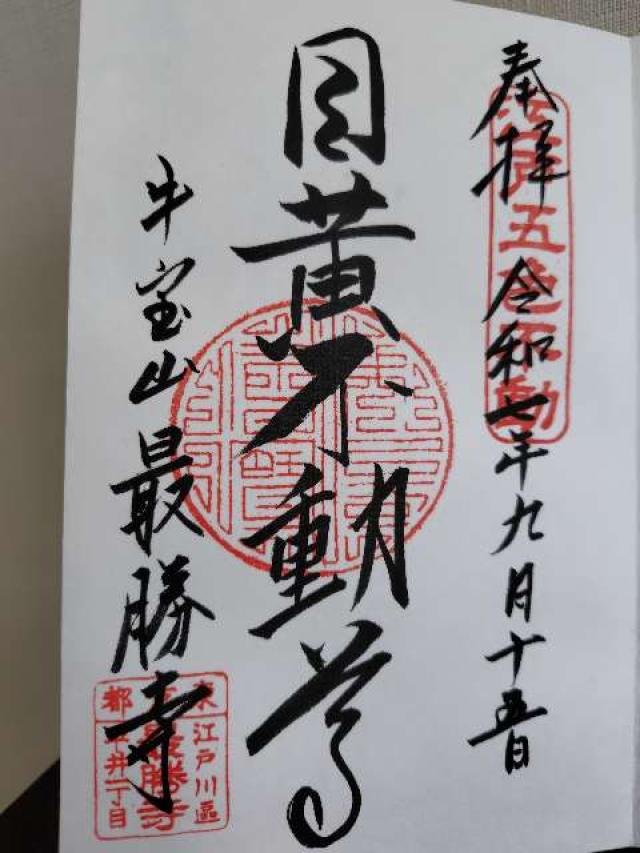 奉拝 令和七年九月十五日
江戸五色不動
目黄不動尊
牛宝山最勝寺
東京都
江戸川區
最勝寺
平井一丁目